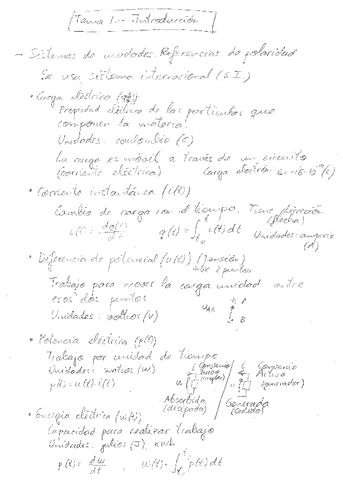 Tema 1.- Introducción
- Sistemas de unidades. Referencias de polaridad
Se usa sistema internacional (S.I.)
• Carga eléctrica (q)
Propiedad eléctrica de las partículas que
componen la materia.
Unidades: coulombio (C)
La carga es móvil a través de un circuito
(corriente eléctrica) Carga electrón
• Corriente instantánea (i(t))
Cambio de carga con el tiempo. Tiene dirección
(flecha)
i(t) = dq(t)/dt q(t) = ∫ i(t) dt Unidades: amperio
(A)
• Diferencia de potencial (u(t)) (tensión)
entre 2 puntos
Trabajo para mover la carga unidad entre
esos dos puntos
Unidades: voltios (V)
• Potencia eléctrica (p(t))
Trabajo por unidad de tiempo
Unidades: watios (W)
p(t) = u(t)·i(t)
Convenio
Convenio
Activo
(generador)
Absorbida
(disipada)
Generada
(cedida)
• Energía eléctrica (w(t))
Capacidad para realizar trabajo
Unidades: julios (J), kWh
p(t) = dw/dt , w(t) = ∫ p(t) dt